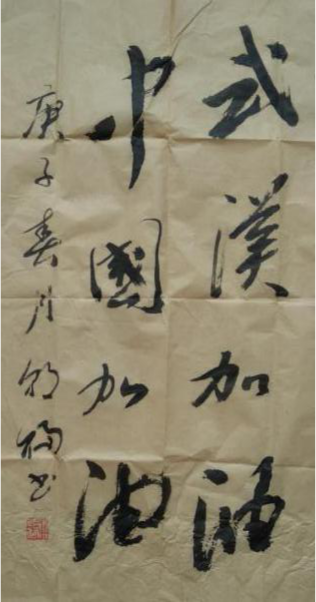 武漢加油
中國加油
庚子春月明福书